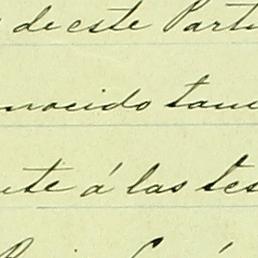 de este Parti
nocido tam
nte á las tes